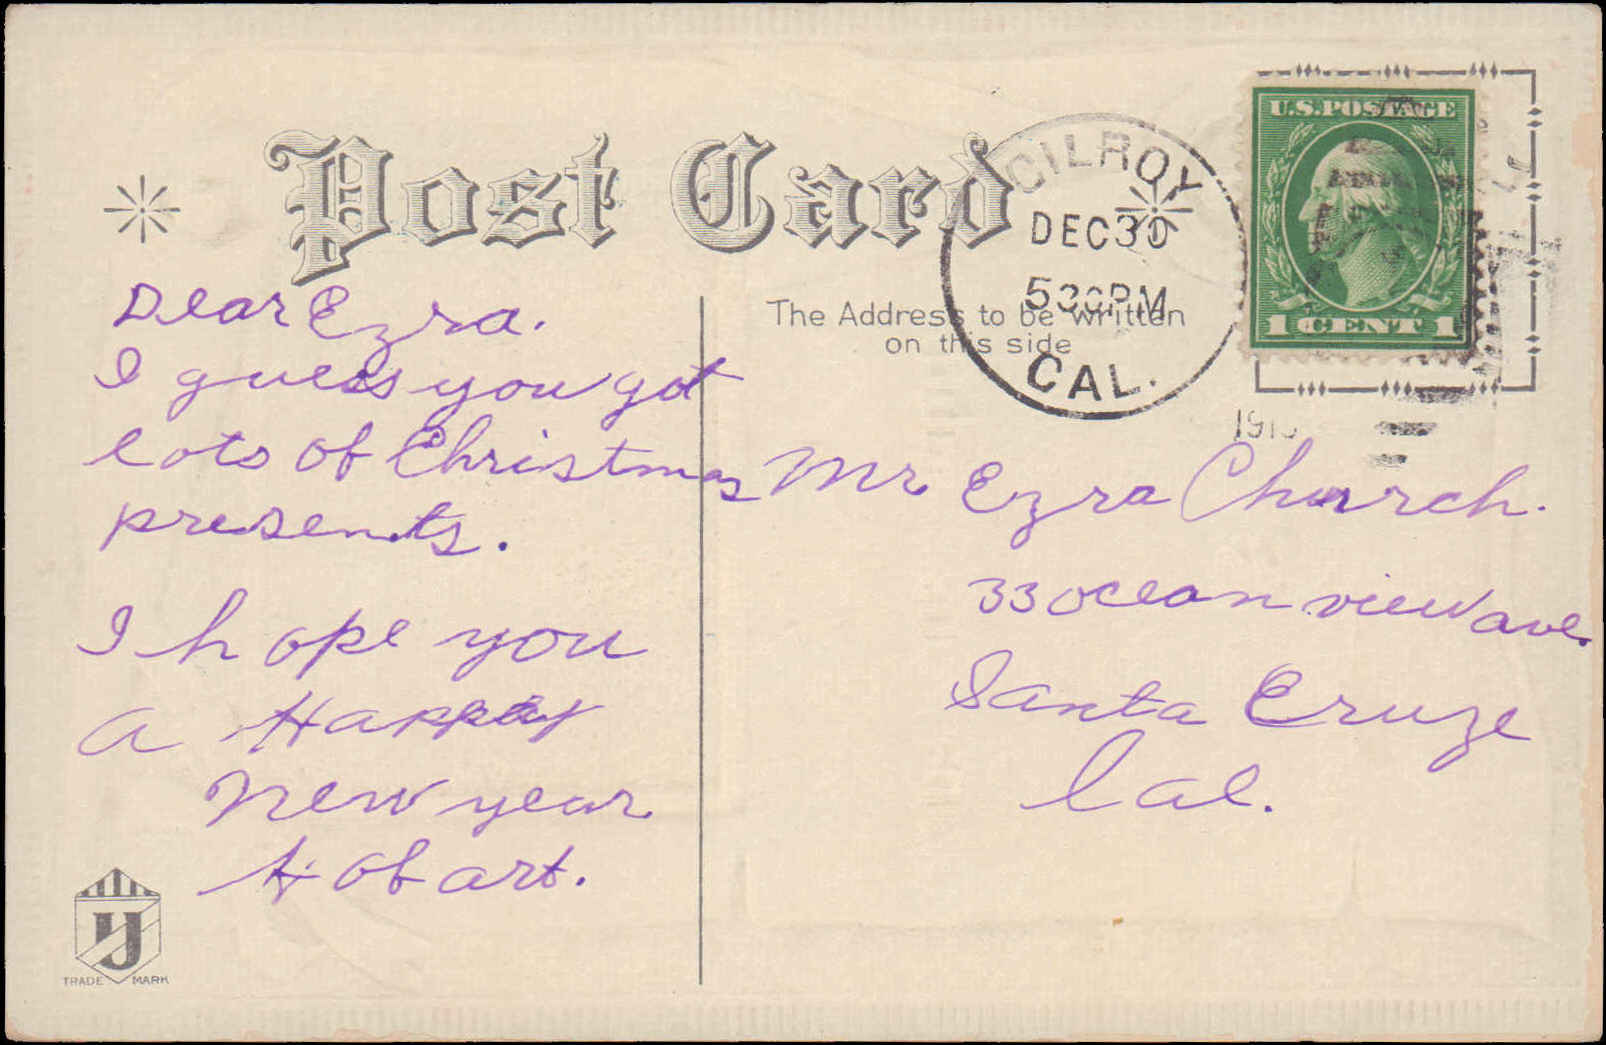 Post Card
GILROY
DEC 30
5 30 PM
CAL.
U.S. POSTAGE
1 CENT 1
The Address to be written
on this side
Dear Ezra.
I guess you got
lots of Christmas
presents.
I hope you
a Happy
New year
Hobart.
Mr Ezra Church.
33 ocean view ave.
Santa Cruze
Cal.
TRADE MARK